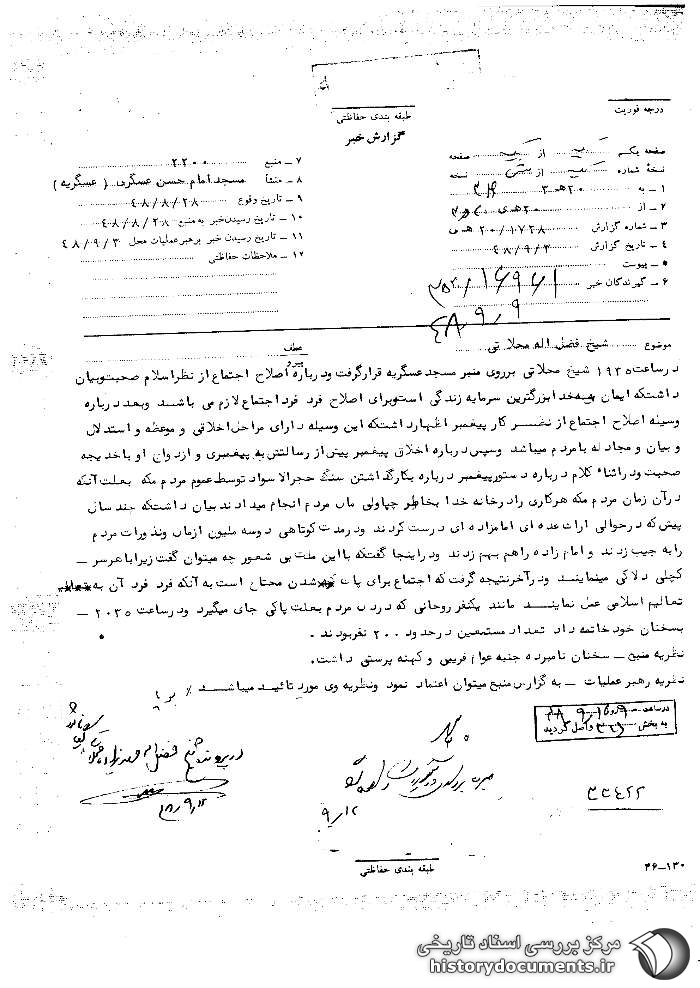 درجه فوریت
طبقه بندی حفاظتی
گزارش خبر
صفحه یکم از صفحه
نسخهٔ شماره از نسخه
۱ ـ به ۲۰ هـ ۳
۲ ـ از ۲۰ هـ ی
۳ ـ شماره گزارش ۲۰/۱۷۲۸ هـ ی
۴ ـ تاریخ گزارش ۴۸/۹/۳
۵ ـ پیوست
۶ ـ گیرندگان خبر
۷ ـ منبع ۲۲۰۰
۸ ـ منشأ مسجد امام حسن عسگری ( عسگریه )
۹ ـ تاریخ وقوع ۴۸/۸/۲۸
۱۰ ـ تاریخ رسیدن خبر به منبع ۴۸/۸/۲۸
۱۱ ـ تاریخ رسیدن خبر برهبر عملیات محل ۴۸/۹/۳
۱۲ ـ ملاحظات حفاظتی
موضوع شیخ فضل اله محلاتی
عطف
پیرو
در ساعت ۱۹۳۵ شیخ محلاتی برروی منبر مسجد عسگریه قرار گرفت و درباره اصلاح اجتماع از نظر اسلام صحبت و بیان
داشت که ایمان بخدا بزرگترین سرمایه زندگی است و برای اصلاح فرد فرد اجتماع لازم می باشد وبعد درباره
وسیله اصلاح اجتماع از نظر کار پیغمبر اظهار داشت که این وسیله دارای مراحل اخلاقی و موعظه و استدلال
و بیان و مجادله با مردم میباشد وسپس درباره اخلاق پیغمبر پیش از رسالتش به پیغمبری و ازدواج او با خدیجه
صحبت و در اثناء کلام درباره دستور پیغمبر درباره بکار گذاشتن سنگ حجرالاسود توسط عموم مردم مکه بعلت آنکه
در آن زمان مردم مکه هر کاری را در خانه خدا بخاطر چپاولی مال مردم انجام میدادند بیان داشت که چند سال
پیش که در حوالی اراک عده ای امامزاده ای درست کردند و در مدت کوتاهی دو سه ملیون از مال و نذورات مردم
را به جیب زدند و امام زاده را هم بهم زدند و در اینجا گفت که با این ملت بی شعور چه میتوان گفت زیرا با هر سر ـ
کچلی دلاکی مینمایند و در آخر نتیجه گرفت که اجتماع برای پاک شدن محتاج است به آنکه فرد فرد آن به
تعالیم اسلامی عمل نمایند مانند یکنفر روحانی که در دل مردم بعلت پاکی جای میگیرد و در ساعت ۲۰۳۵ ـ
بسخنان خود خاتمه داد تعداد مستمعین در حدود ۲۰۰ نفر بودند .
نظریه منبع ـ سخنان نامبرده جنبه عوام فریبی و کهنه پرستی داشت.
نظریه رهبر عملیات ـ به گزارش منبع میتوان اعتماد نمود ونظریه وی مورد تائید میباشد
در ساعت
به بخش ۳۲۱ واصل گردید
در پرونده شیخ فضل اله
۴۸/۹/۱۲
۹/۱۲
۳۳۴۲۲
طبقه بندی حفاظتی
۴۶ــ۱۳۰
مرکز بررسی اسناد تاریخی
historydocuments.ir